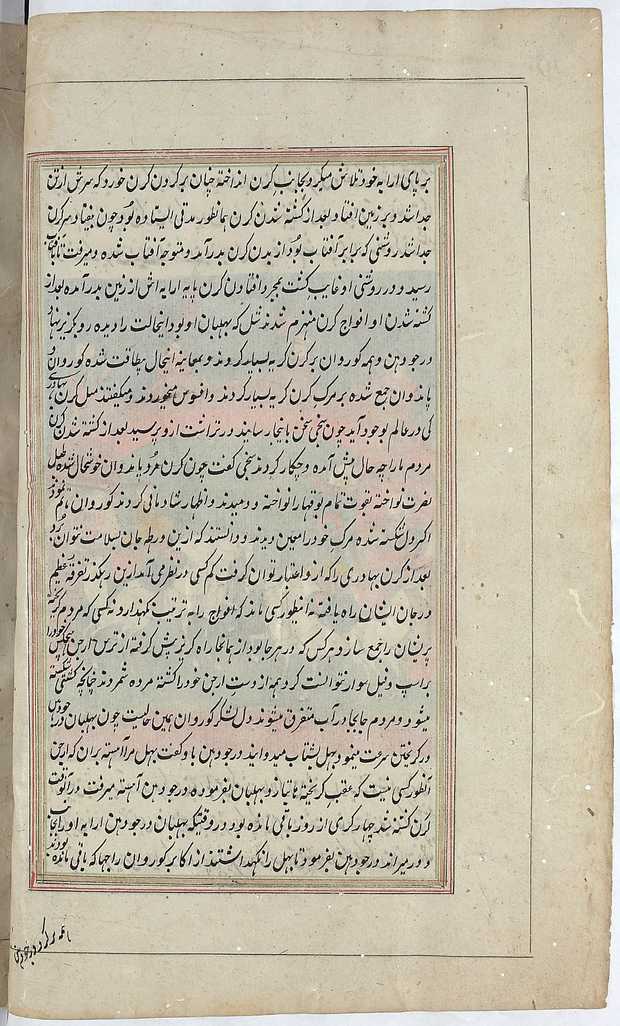 بر پای ارابه خود تلاش میکرد بجانب کرن انداخته چنان بر کردن کرن خورد که سرش از تن
جدا شد و بر زمین افتاد و بعد از کشته شدن کرن همانطور مدتی ایستاده بود چون بیفتاد سر کرن
جدا شد روشنی که برابر آفتاب بود از بدن کرن بدر آمد و متوجه آفتاب شده و میرفت تا بآفتاب
رسید و در روشنی او غایب کشت بمجرد افتادن کرن پایه ارابه اش از زمین بدر آمده بعد از
کشته شدن او افواج کرن منهزم شدند شل که بهلبان او بود اینحالت را دیده رو بکریز نهاد
درجودهن و همه کوروان بر کرن کریه بسیار کردند و بمعاینه اینحال بیطاقت شده کوروان و
پاندوان جمع شده بر مرک کرن کریه بسیار کردند و افسوس میخوردند و میکفتند مثل کرن بهادری
کی در عالم بوجود آید چون سخن باینجا رسانید درتراشت ازو پرسید بعد از کشته شدن کرن
مردم ما را چه حال پیش آمده و چکار کردند سنجی کفت چون کرن مرد پاندوان خوشحال شده طبل
نصرت نواخته بقوت تمام بوقها را نواخته دمیدند و اظهار شادمانی کردند کوروان
اکبر دل شکسته شده مرک خود را معین دیدند و دانستند که ازین ورطه جان بسلامت نتوان برد
بعد از کرن بهادری را که ازو اعتبار توان کرفت کم کسی در نظر می آمد ازین رهکذر تفرقه عظیم
در جان ایشان راه یافته نه کسی ماند که افواج را به ترتیب نکهدارد نه کسی که مردم کریخته
پریشان را جمع سازد و هر کس که در هر جا بود از همانجا راه کریز پیش کرفته از ترس ارجن هیچکس خود را
بر اسپ و فیل سوار نتوانست کرد همه از دست ارجن خود را کشته و مرده شمردند چنانچه کشتی شکسته
میشود و مردم جابجا در آب متفرق میشوند دل لشکر کوروان همین حالت چون بهلبان درجودهن
در کریختن سرعت مینمود و بهل شتاب میدوانید درجودهن باو کفت بهل مرا آهسته بران که ارجن
آنطور کسی نیست که عقب کریخته ها بتازد بهلبان بفرموده درجودهن آهسته میرفت در آنوقت
کرن کشته شد چهار کری از روز باقی مانده بود در وقتیکه بهلبان درجودهن ارابه او را بجانب
و در میراند درجودهن بفرمود تا بهل را نکهداشتند از اکابر کوروان راجها که باقی مانده بودند